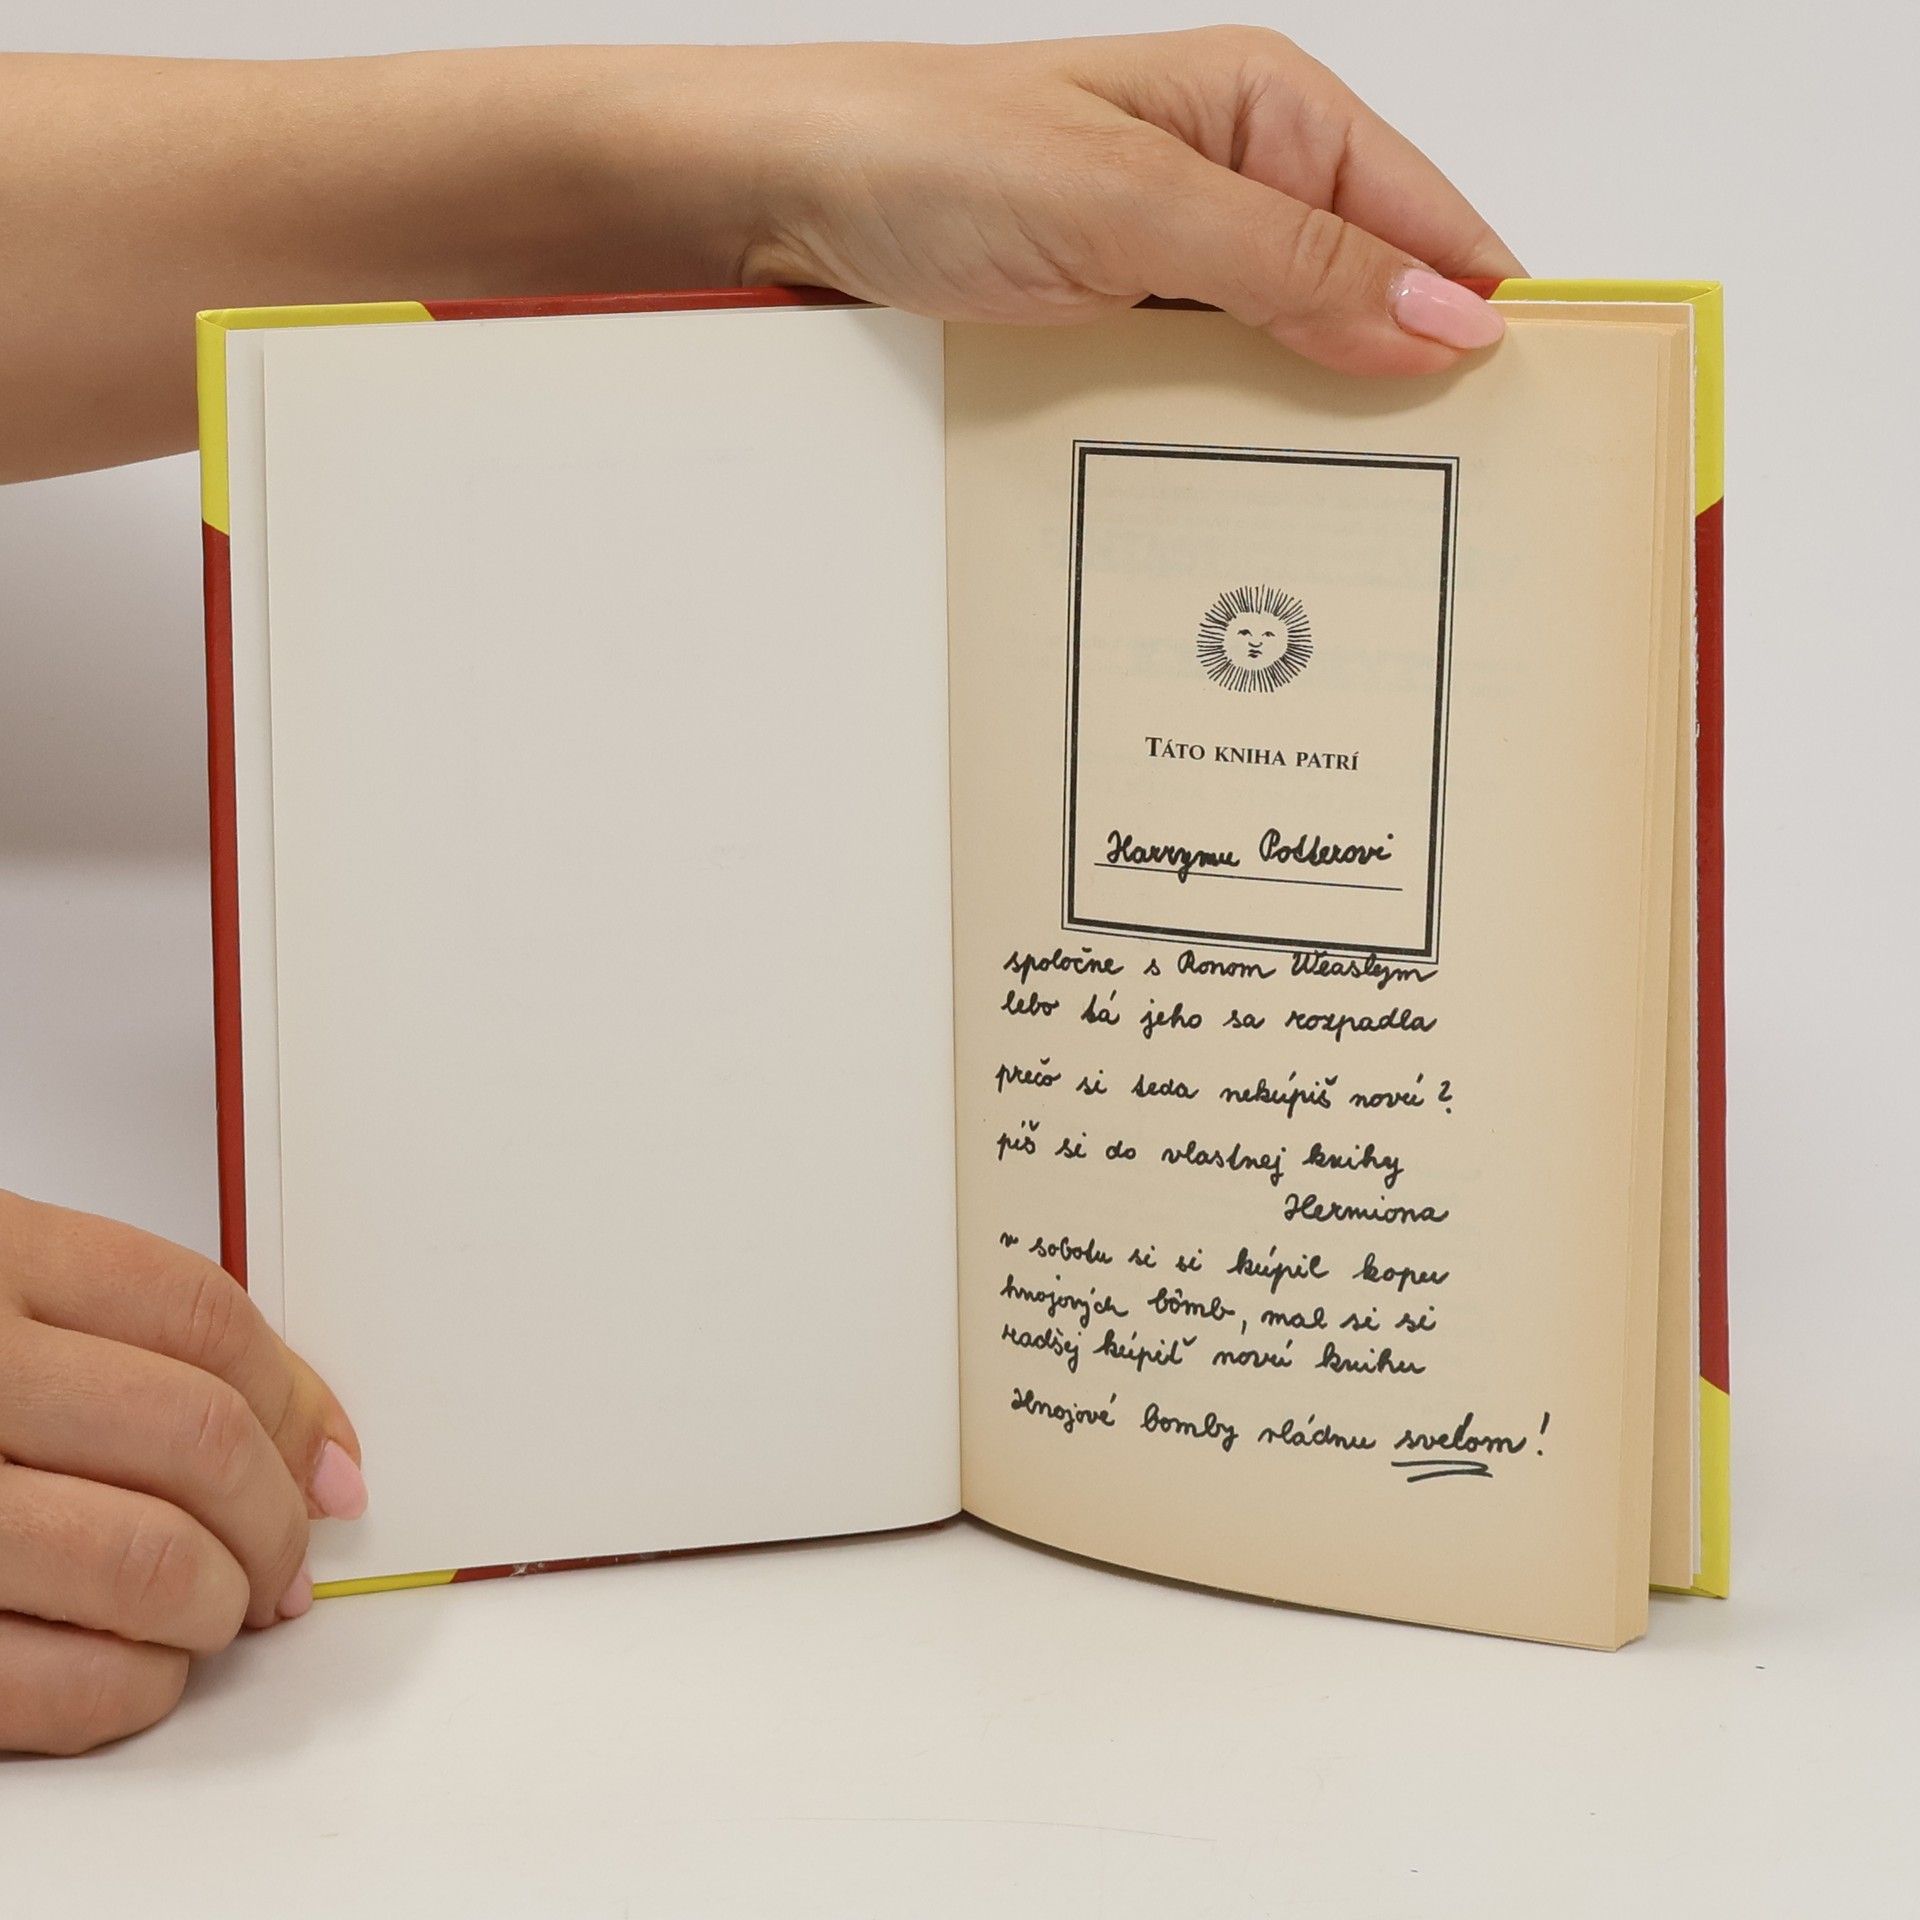 TÁTO KNIHA PATRÍ
Harrymu Potterovi
spoločne s Ronom Weaslym
lebo tá jeho sa rozpadla
prečo si teda nekúpiš novú?
píš si do vlastnej knihy
Hermiona
v sobotu si si kúpil kopu
hnojových bômb, mal si si
radšej kúpiť novú knihu
Hnojové bomby vládnu svetom!